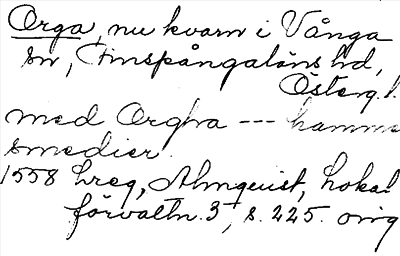 Orga, nu kvarn i Vånga
sn, Finspångaläns hd,
Österg. l.
med Orghra --- hamma
smedier.
1558 hreg, Almquist, Lokal
förvaltn. 3, s. 225. orig